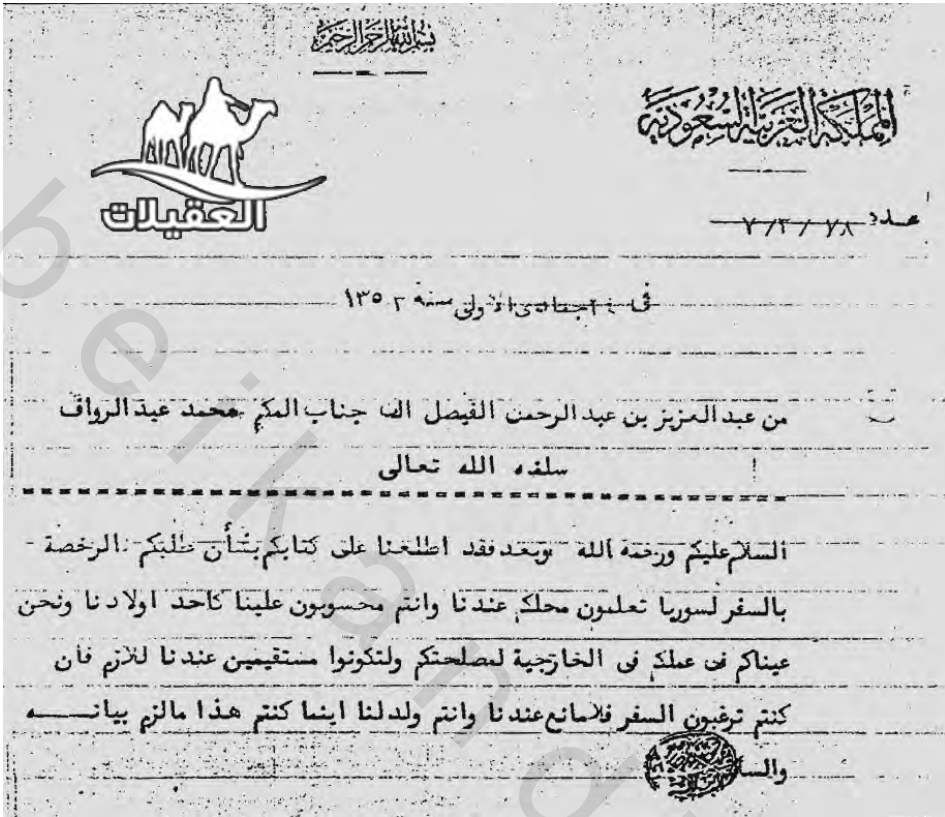 بسم الله الرحمن الرحيم
المملكة العربية السعودية
العقيلات
عدد ٧٨ / ٣ / ٧
في جمادى الاولى سنة ١٣٥٢
من عبد العزيز بن عبد الرحمن الفيصل الى جناب المكرم محمد عيد الرواف
سلمه الله تعالى
السلام عليكم ورحمة الله وبعد فقد اطلعنا على كتابكم بشأن طلبكم الرخصة
بالسفر لسوريا تعلمون محلكم عندنا وانتم محسوبون علينا كاحد اولادنا ونحن
عيناكم في عملكم في الخارجية لمصلحتكم ولتكونوا مستقيمين عندنا للازم فان
كنتم ترغبون السفر فلا مانع عندنا وانتم ولد لنا اينما كنتم هذا مالزم بيانـــــه
والسلا